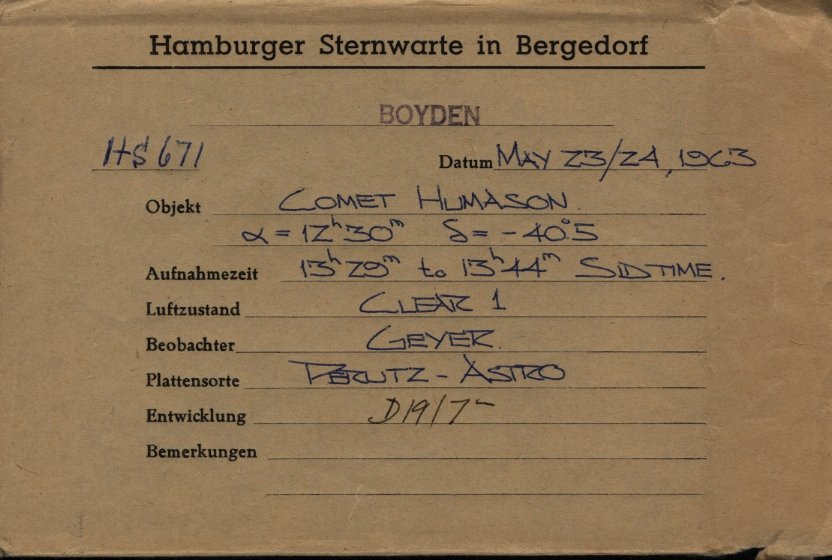 Hamburger Sternwarte in Bergedorf
BOYDEN
HS 671 Datum MAY 23/24, 1963
Objekt COMET HUMASON.
α = 12ʰ30ᵐ δ = -40°.5
Aufnahmezeit 13ʰ29ᵐ to 13ʰ44ᵐ SID TIME.
Luftzustand CLEAR 1
Beobachter GEYER.
Plattensorte PERUTZ - ASTRO
Entwicklung D19/7-
Bemerkungen